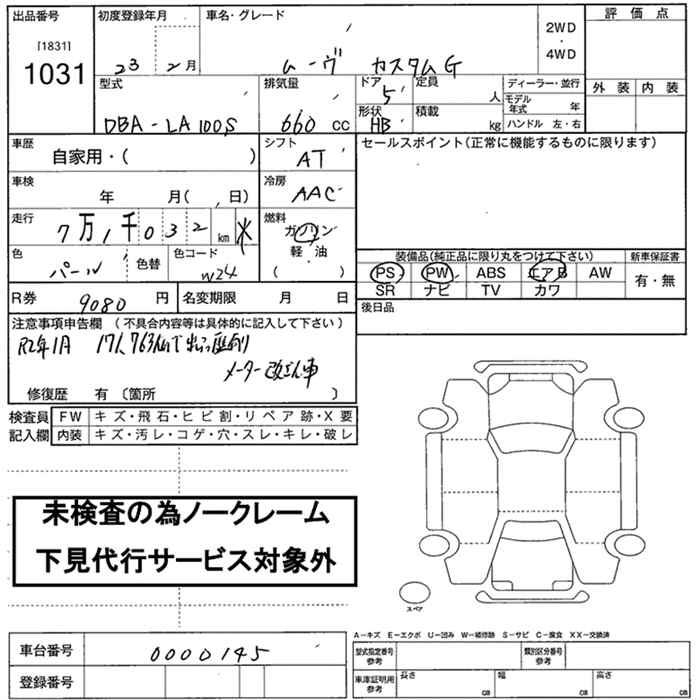 出品番号
[1831]
1031
初度登録年月
23 2月
車名・グレード
ムーヴ カスタムG
2WD
・
4WD
評価点
外装 内装
型式
DBA-LA100S
排気量
660 CC
ドア
5
形状
HB
定員
人
積載
kg
ディーラー・並行
モデル年式 年
ハンドル 左・右
車歴
自家用・( )
シフト
AT
セールスポイント(正常に機能するものに限ります)
車検
年 月( 日)
冷房
AAC
走行
7万1千032km
燃料
ガソリン
軽・油
( )
色
パール
色替
色コード
W24
装備品(純正品に限り丸をつけて下さい)
PS PW ABS エアB AW
SR ナビ TV カワ
新車保証書
有・無
R券 9080円
名変期限 月 日
後日品
注意事項申告欄(不具合内容等は具体的に記入して下さい)
R2年1月 171,763kmで出品歴有り
メーター改ざん車
修復歴 有(箇所 )
検査員
記入欄
FW キズ・飛石・ヒビ割・リペア跡・X要
内装 キズ・汚レ・コゲ・穴・スレ・キレ・破レ
未検査の為ノークレーム
下見代行サービス対象外
スペア
A-キズ E-エクボ U-凹み W-補修跡 S-サビ C-腐食 XX-交換済
車台番号 0000145
登録番号
型式指定番号
参考
類別区分番号
参考
車庫証明用
参考
長さ CM
幅 CM
高さ CM